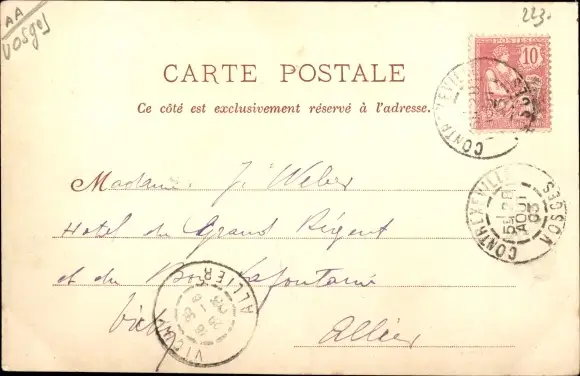 AA
Vosges
223.
POSTES
10
CARTE POSTALE
Ce côté est exclusivement réservé à l'adresse.
CONTREXEVILLE
VOSGES
CONTREXEVILLE VOSGES
5E 28
AOUT
03
Madame J. Weber
Hotel du Grand Régent
et du Bon Lafontaine
Vichy
Allier
VICHY ALLIER